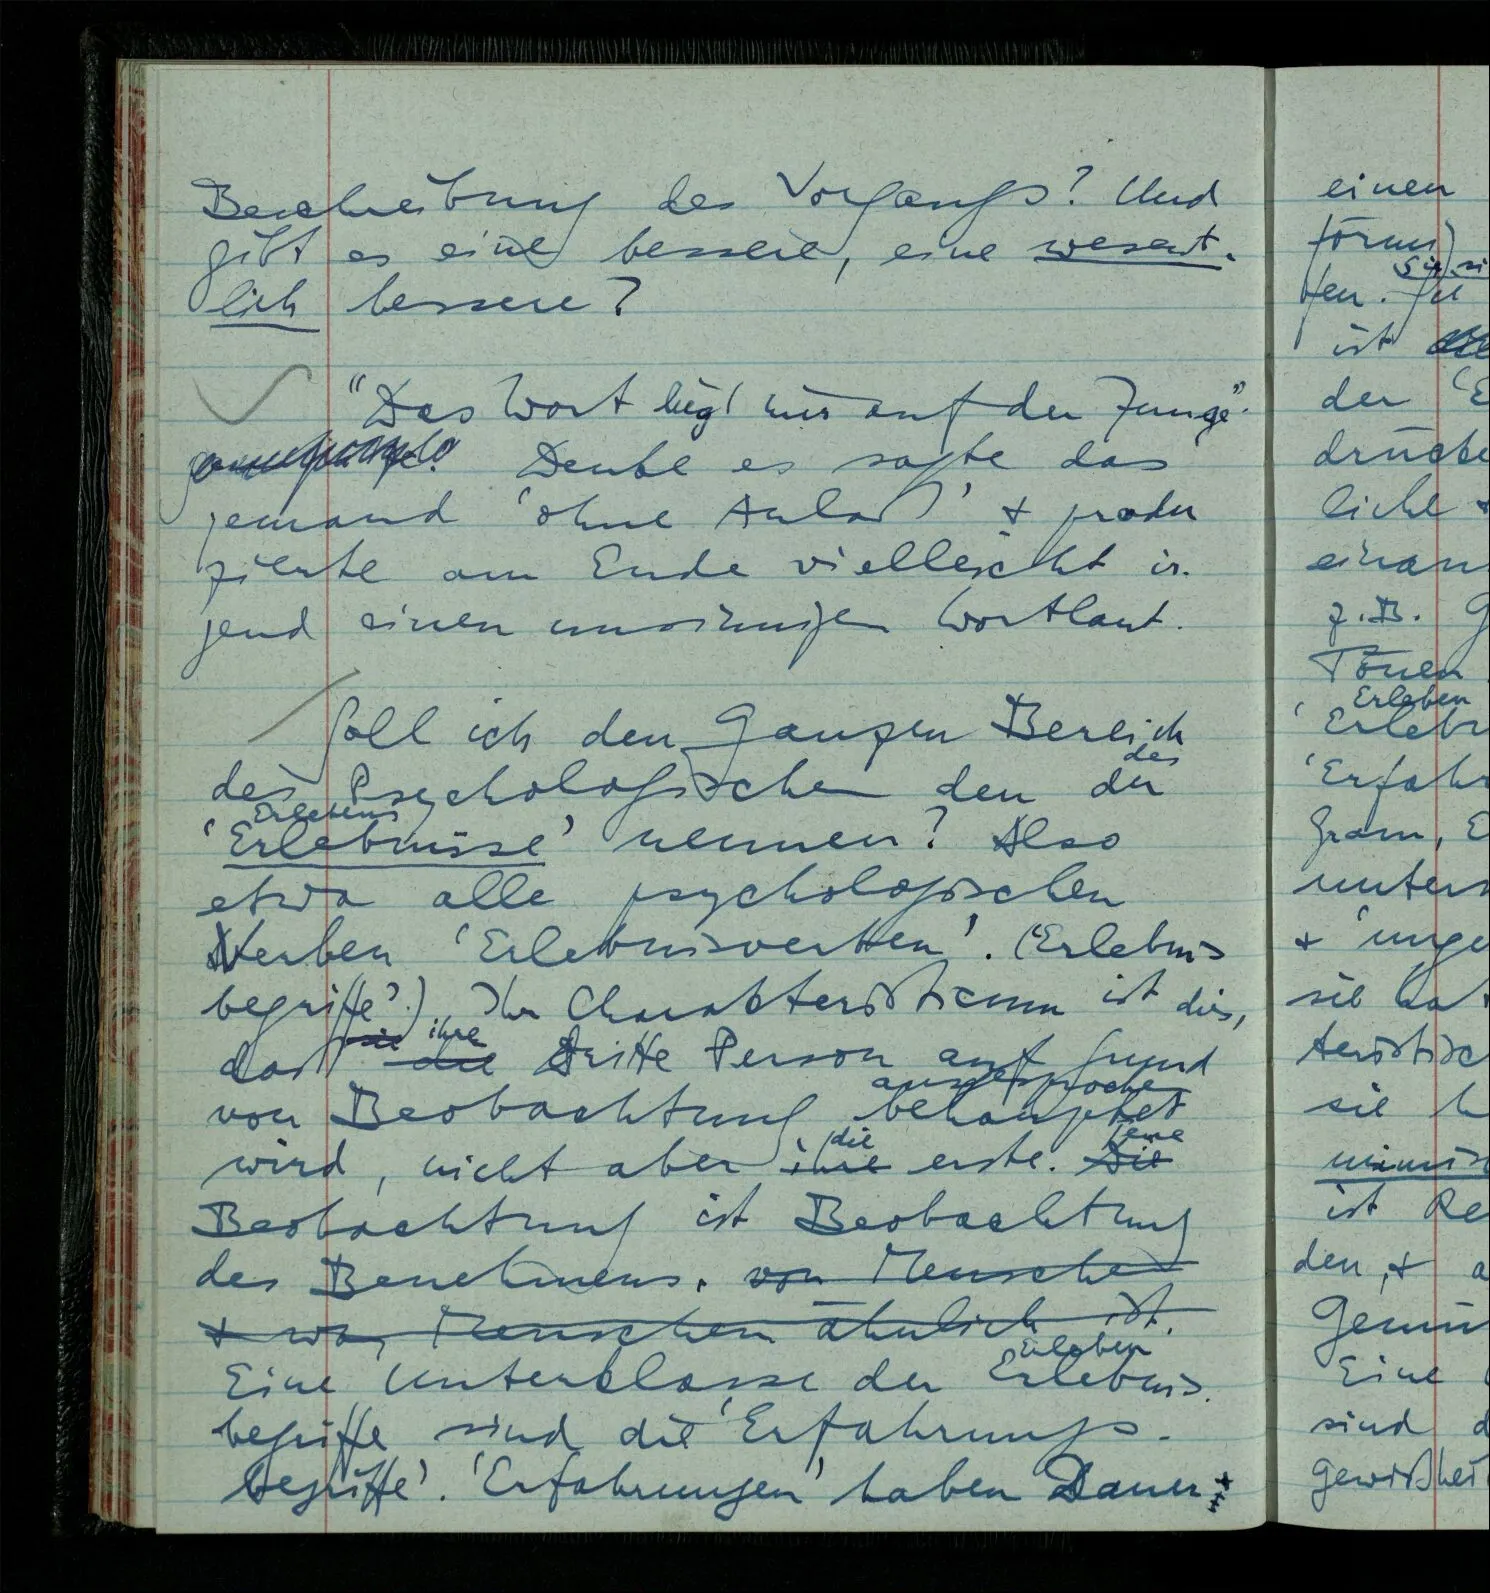 Beschreibung des Vorgangs? Und
gibt es eine bessere, eine wesent-
lich bessere?
"Das Wort liegt mir auf der Zunge".
Denke es sagte das
jemand 'ohne Anlaß' & produ
zierte am Ende vielleicht ir-
gend einen unsinnigen Wortlaut.
Soll ich den ganzen Bereich
des
des Psychologischen den der
Erlebens
'Erlebnisse' nennen? Also
etwa alle psychologischen
Verben 'Erlebnisverben'. ('Erlebnis
begriffe'.) Ihr Charakteristicum ist dies,
sie ihre
daß die dritte Person auf Grund
ausgesprochen
von Beobachtung behauptet
die jene
wird, nicht aber ihre erste. Die
Beobachtung ist Beobachtung
des Benehmens. von Menschen
& was Menschen ähnlich ist.
Erleben
Eine Unterklasse der Erlebnis-
begriffe sind die 'Erfahrungs-
begriffe'. 'Erfahrungen' haben Dauer
einen
förmi
Sie si
ten.
ist
der 'E
drücke
liche &
einan
z.B. G
Tönen
Erleben
'Erleb
'Erfahr
Gram, E
unters
& 'unge
sie hat
teristisc
sie h
mimis
ist Re
den, & a
Gemü
Eine
sind d
Gewißhei